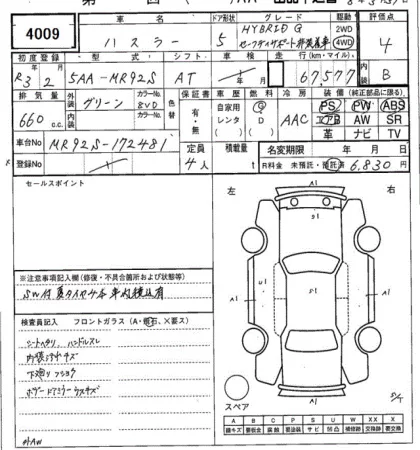 4009
車名
ハスラー
ドア形状
5
グレード
HYBRID G
駆動
2WD
4WD
評価点
4
初度登録
R3 2
型式
5AA-MR92S
シフト
AT
車検
年 月
走行 (km・マイル)
67,577
内装
B
排気量
660 c.c.
外装色
グリーン
カラーNo.
8VD
色替
保証書
有・無
車歴
自家用
レンタ
燃料
G
D
冷房
AAC
装備 (純正部品に限る)
PS PW ABS
エアB AW SR
革 ナビ TV
車台No.
MR92S-172481
定員
4人
積載量
t
名変期限
年 月 日
登録No.
R料金 未預託・預託済
6,830 円
セールスポイント
左
右
A1
S1
A1
U1
S1
A1
A1
※注意事項記入欄 (修復・不具合箇所および状態等)
SW付夏タイヤ4本車内積込有
検査員記入 フロントガラス (A・飛石、X要ス)
シートヘタリ、ハンドルスレ
内装ヨゴレキズ
下廻りフショク
ボデードアミラーウスキズ
外AW
スペア
A B C P S U W X XX X
線キズ 要板金 腐食 要塗装 サビ 凹凸 補修跡 要交換 交換跡 要交換